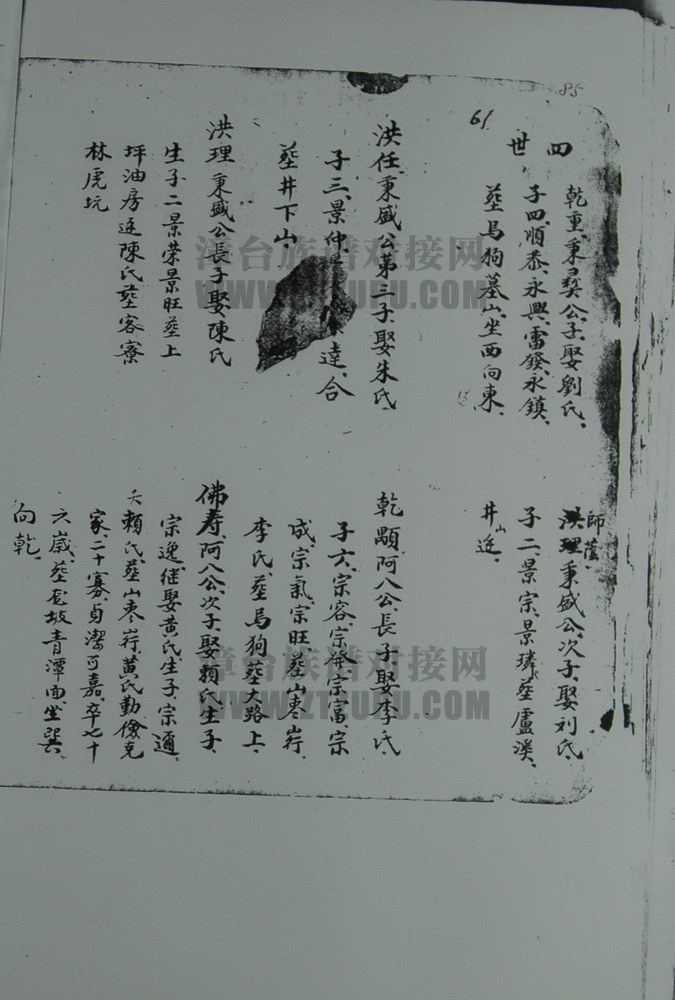 85
61
四世
乾重、秉彛公子、娶劉氏、
子四、順恭、永興、雷發、永鎮、
塟馬狗墓山、坐西向東、
洪任、秉盛公第三子、娶朱氏、
子三、景仲、達、合
塟井下山、
洪理、秉盛公長子、娶陳氏
生子二景荣景旺塟上
坪油房迳陳氏塟客寮
林虎坑
師蔭、
洪理秉盛公次子、娶刘氏、
子二、景宗、景璘、塟盧溪、
井山迳、
乾顯阿八公長子、娶李氏、
子六、宗容、宗發、宗富、宗
成、宗氣、宗旺、塟山枣
李氏、塟馬狗塟大路上、
佛寿、阿八公次子、娶賴氏生子、
宗逸、继娶黄氏、生子、宗通、
賴氏、塟山枣、黄氏勤儉克
家、二十寡、貞潔可嘉、卒七十
六歲、塟坡青潭面、坐巽
向乾、
漳台族谱对接网
WWW.ZTZUPU.COM
漳台族谱对接网
WWW.ZTZUPU.COM